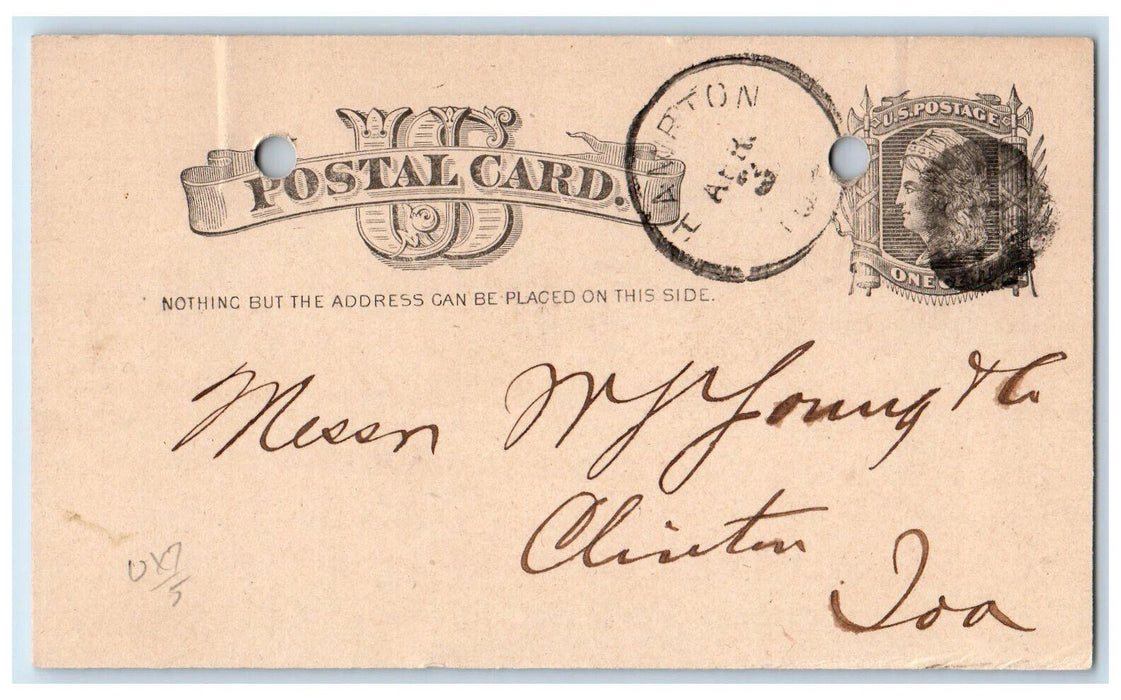 US
POSTAL CARD.
U.S. POSTAGE
ONE CENT
APR
NOTHING BUT THE ADDRESS CAN BE PLACED ON THIS SIDE.
Messrs W J Young & Co.
Clinton
Ioa
UX7
5